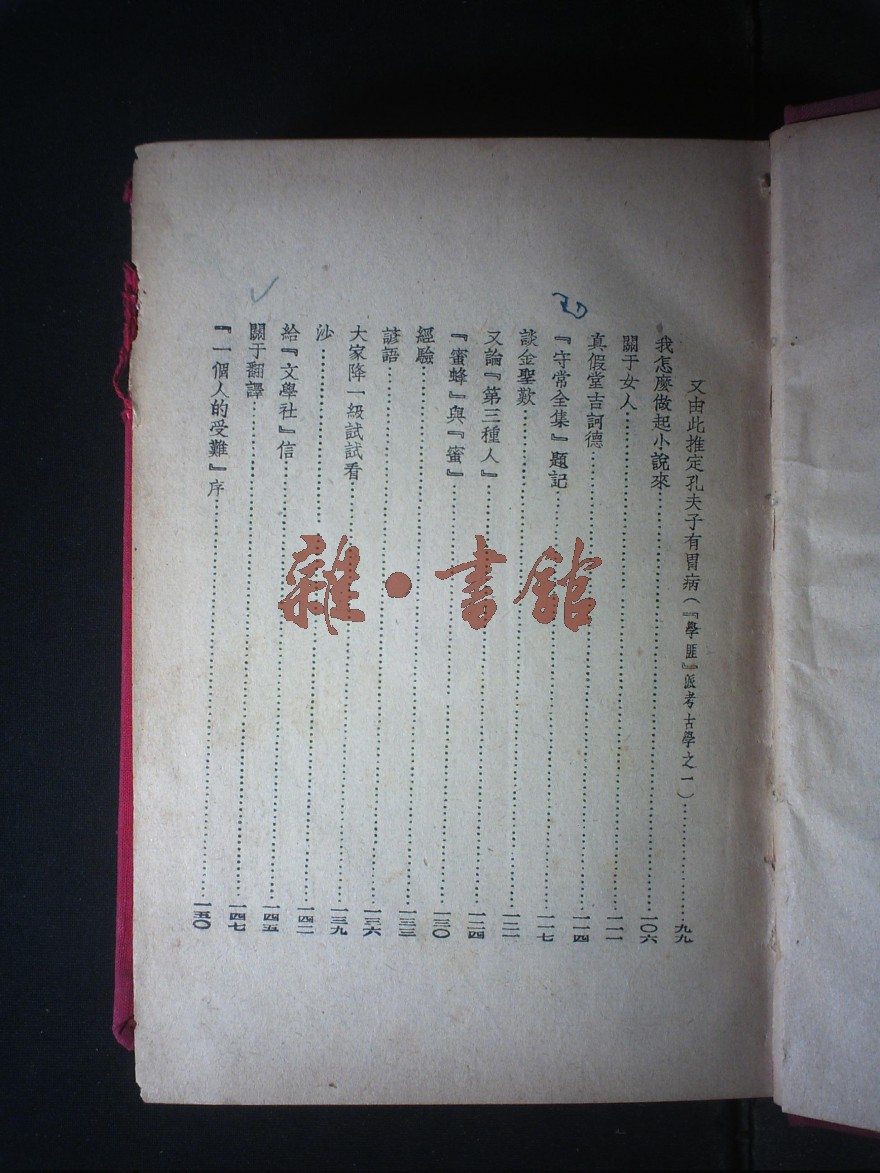 又由此推定孔夫子有胃病（『學匪』派考古學之一）……九九
我怎麼做起小說來……一〇六
關于女人……一一一
真假堂吉訶德……一一四
『守常全集』題記……一一七
談金聖歎……一二一
又論『第三種人』……一二四
『蜜蜂』與『蜜』……一三〇
經驗……一三三
諺語……一三六
大家降一級試試看……一三九
沙……一四二
給『文學社』信……一四五
關于翻譯……一四七
『一個人的受難』序……一五〇
雜·書館